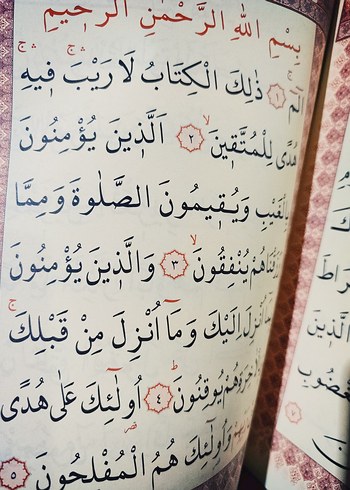 بِسْمِ اللهِ الرَّحْمٰنِ الرَّحِيمِ
الٓمٓ ۚ ﴿١﴾ ذٰلِكَ الْكِتَابُ لَا رَيْبَ ۛ ۚ فِيهِ ۛ ۚ
هُدًى لِلْمُتَّقِينَ ۙ ﴿٢﴾ اَلَّذِينَ يُؤْمِنُونَ
بِالْغَيْبِ وَيُقِيمُونَ الصَّلٰوةَ وَمِمَّا
رَزَقْنَاهُمْ يُنْفِقُونَ ۙ ﴿٣﴾ وَالَّذِينَ يُؤْمِنُونَ
اُنْزِلَ اِلَيْكَ وَمَٓا اُنْزِلَ مِنْ قَبْلِكَ ۚ
هُمْ يُوقِنُونَ ۜ ﴿٤﴾ اُو۬لٰٓئِكَ عَلٰى هُدًى
وَاُو۬لٰٓئِكَ هُمُ الْمُفْلِحُونَ ﴿٥﴾